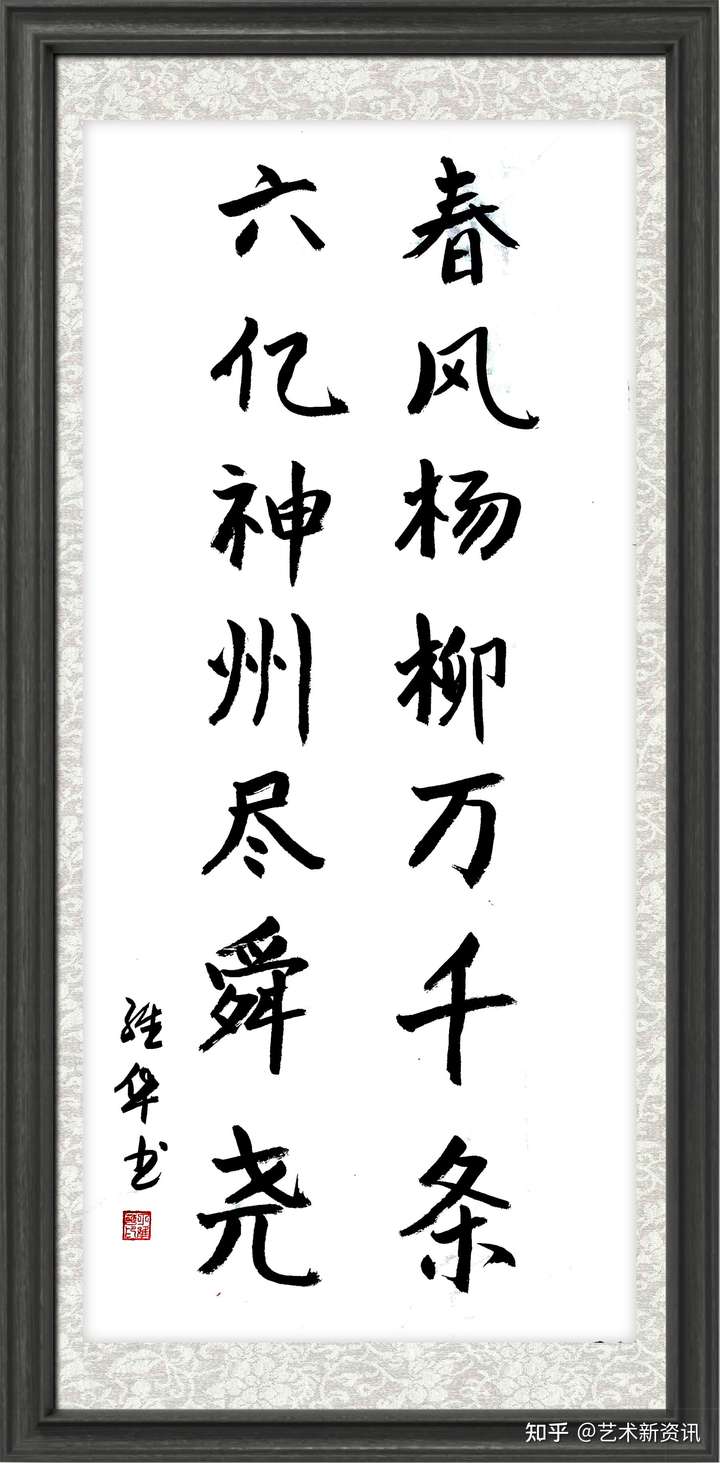 春风杨柳万千条
六亿神州尽舜尧
维华书
知乎 @艺术新资讯